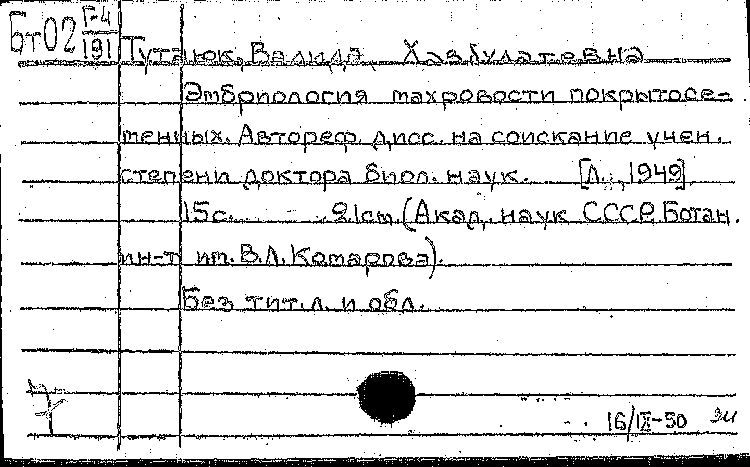 Бт02 Г-4
191
Тутаюк, Валида Хасбулатовна
Эмбриология махровости покрытосе-
менных. Автореф. дисс. на соискание учен.
степени доктора биол. наук. [Л., 1949].
15с. 21см. (Акад. наук СССР. Ботан.
ин-т им. В.Л. Комарова).
Без тит. л. и обл.
16/IX-50